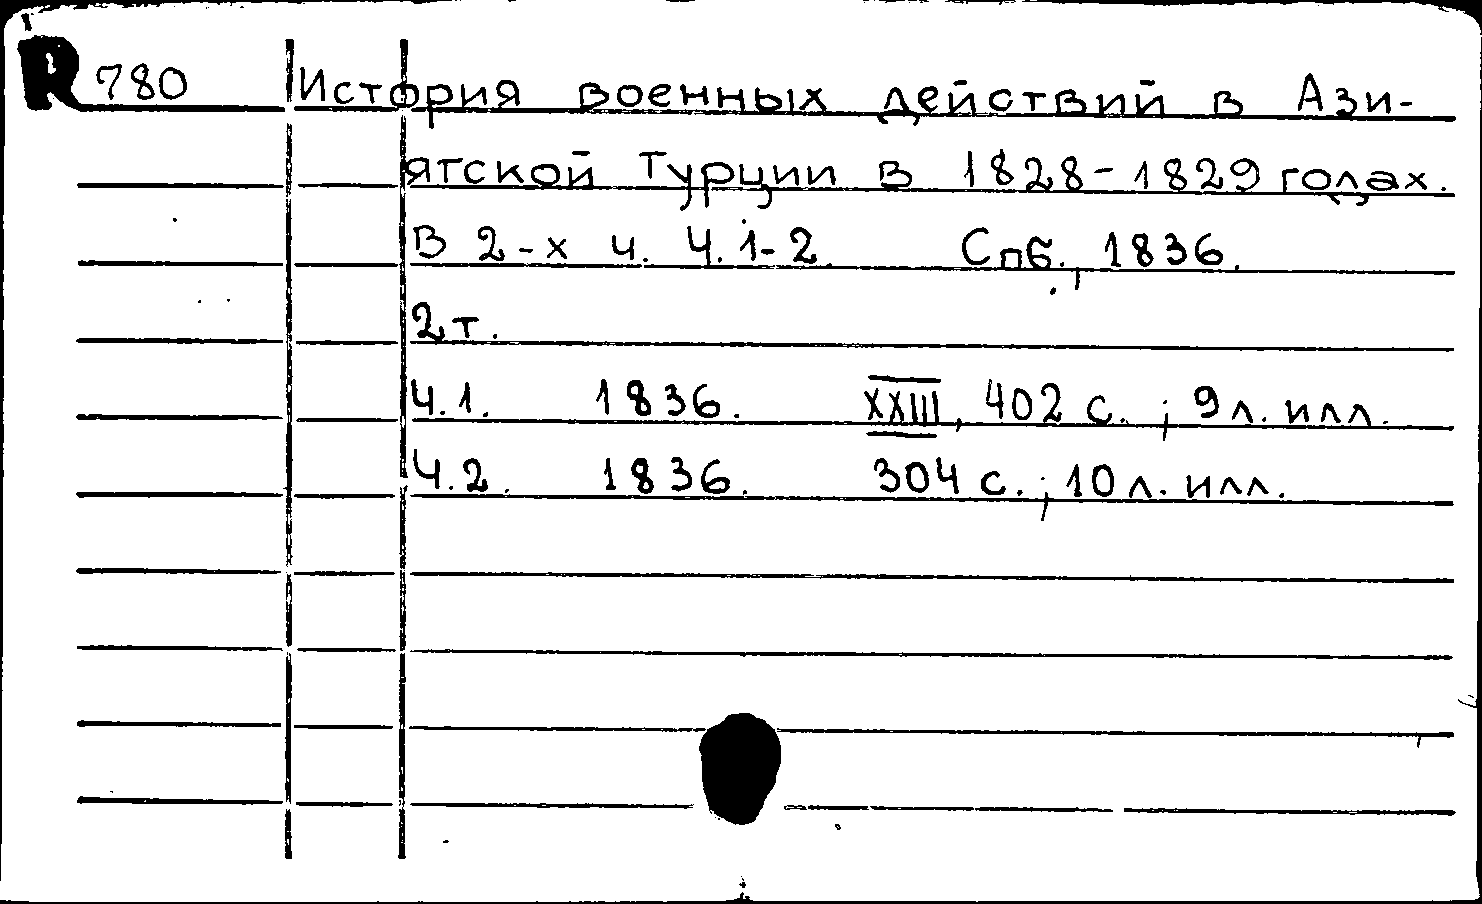 R 780 История военных действий в Ази-
ятской Турции в 1828-1829 годах.
В 2-х ч. Ч. 1-2. Спб., 1836.
2 т.
Ч.1. 1836. XXIII, 402 с.; 9 л. илл.
Ч.2. 1836. 304 с.; 10 л. илл.